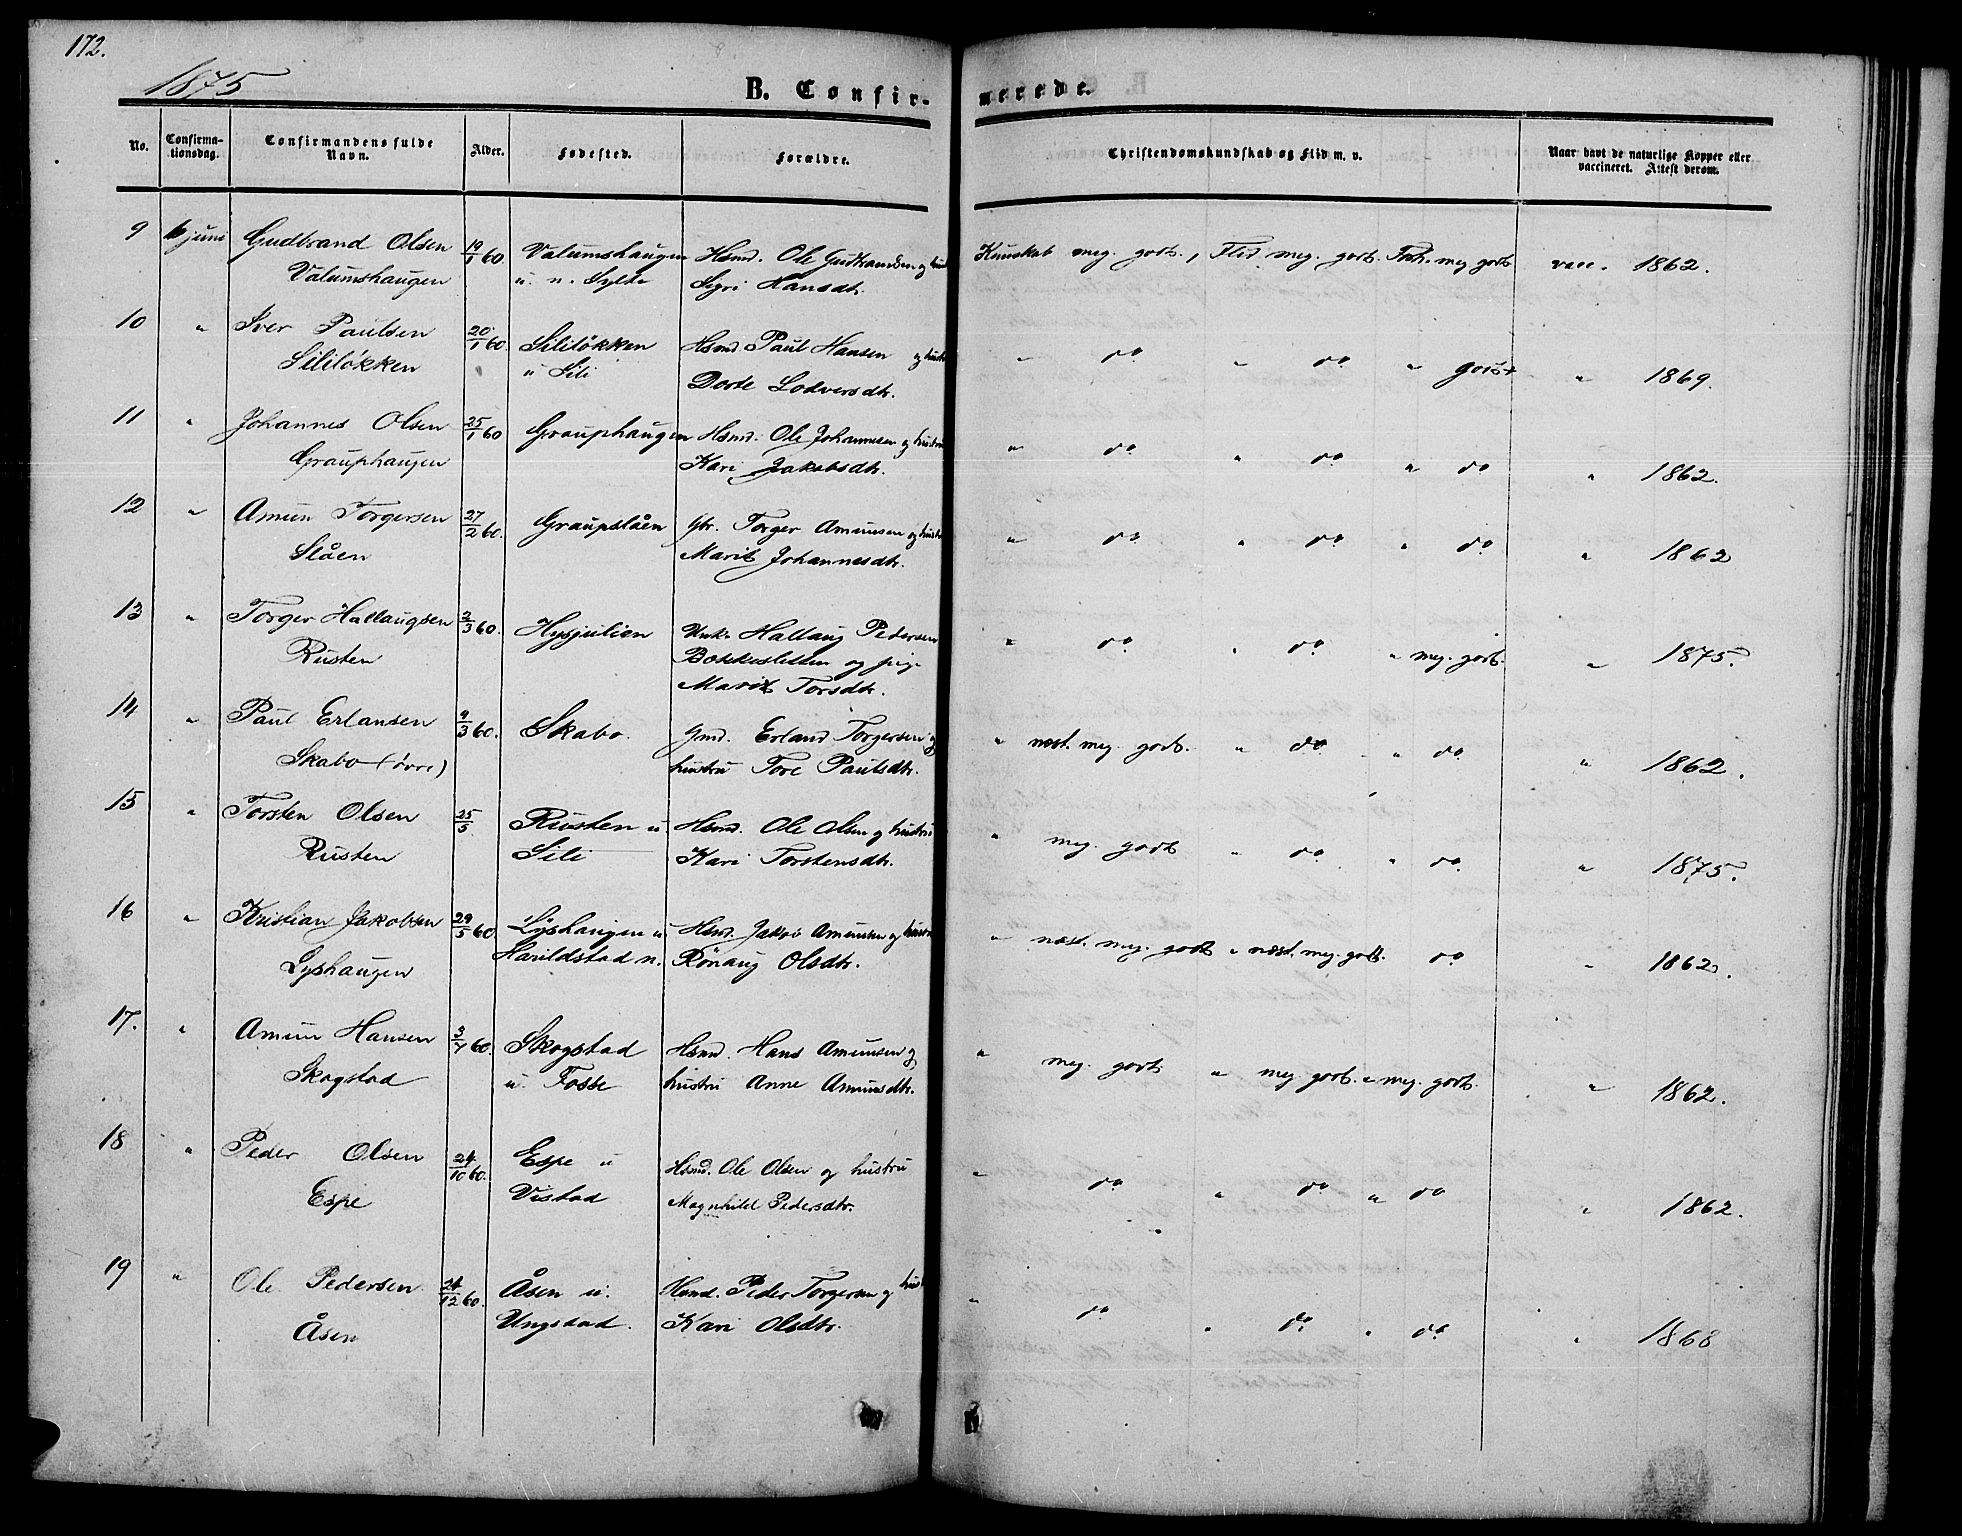 172.
1875
B. Confir-
merede.
No. Confirma-tionsdag. Confirmandens fulde Navn. Alder. Fødested. Forældre. Christendomskundskab og Flid m. v. Naar havt de naturlige Kopper eller vaccineret. Attest derom.
9 6 juni Gudbrand Olsen 19/1 60 Valumshaugen Hsmd. Ole Gudbrandsen og hust Kunskab meg. godt., Flid meg. godt. Forh. meg godt vacc. 1862.
Valumshaugen u. n. Sylte Sigri Hansdtr.
10 " Iver Paulsen 20/1 60. Sililøkken Hsmd. Paul Hansen og hustr " do " do " godt " 1869.
Sililøkken u Sili Dorte Lodversdtr.
11 " Johannes Olsen 25/1 60 Grauphaugen Hsmd. Ole Johannesen og hustru " do " do " do " 1862.
Grauphaugen Kari Jakobsdtr.
12 " Amun Torgersen 27/2 60. Graupslåen Gbr. Torger Amunsen og hustr " do " do " do " 1862
Slåen Marit Johannesdtr.
13 " Torger Hallaugsen 2/3 60. Hysjulien Unk. Hallaug Pedersen " do " do " meg. godt. " 1875.
Rusten Bækkesletten og pige
Marit Torsdtr.
14 " Paul Erlansen 9/3 60. Skabo. Gmd. Erland Torgersen og " næst. meg. godt. " do " do " 1862.
Skabo (øvre) hustru Tore Paulsdtr.
15 " Torsten Olsen 25/5 Rusten u Hsmd. Ole Olsen og hustru " meg. godt " do " do " 1875.
Rusten Sili Kari Torstensdtr.
16 " Kristian Jakobsen 29/5 60 Lyshaugen u. Hsmd. Jakob Amunsen og hustru " næst. meg. godt " næst. meg. godt. do " 1862.
Lyshaugen Harildstad n. Rønaug Olsdtr.
17. " Amun Hansen 3/7 60. Skogstad Hsmd. Hans Amunsen og " meg. godt " meg. godt. " meg. godt. " 1862.
Skogstad u. Fosse hustru Anne Amunsdtr.
18 " Peder Olsen 24/10 60. Espe u Hsmd. Ole Olsen og hustru " do " do " do " 1862.
Espe Vistad Magnhild Pedersdtr.
19 " Ole Pedersen 24/12 60. Åsen u. Hsmd. Peder Torgersen og hust " do " do " do " 1868
Åsen Ungstad. Kari Olsdtr.